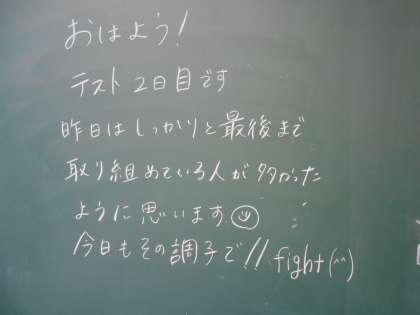 おはよう!
テスト2日目です
昨日はしっかりと最後まで
取り組めている人が多かった
ように思います☺
今日もその調子で!! fight(^^)